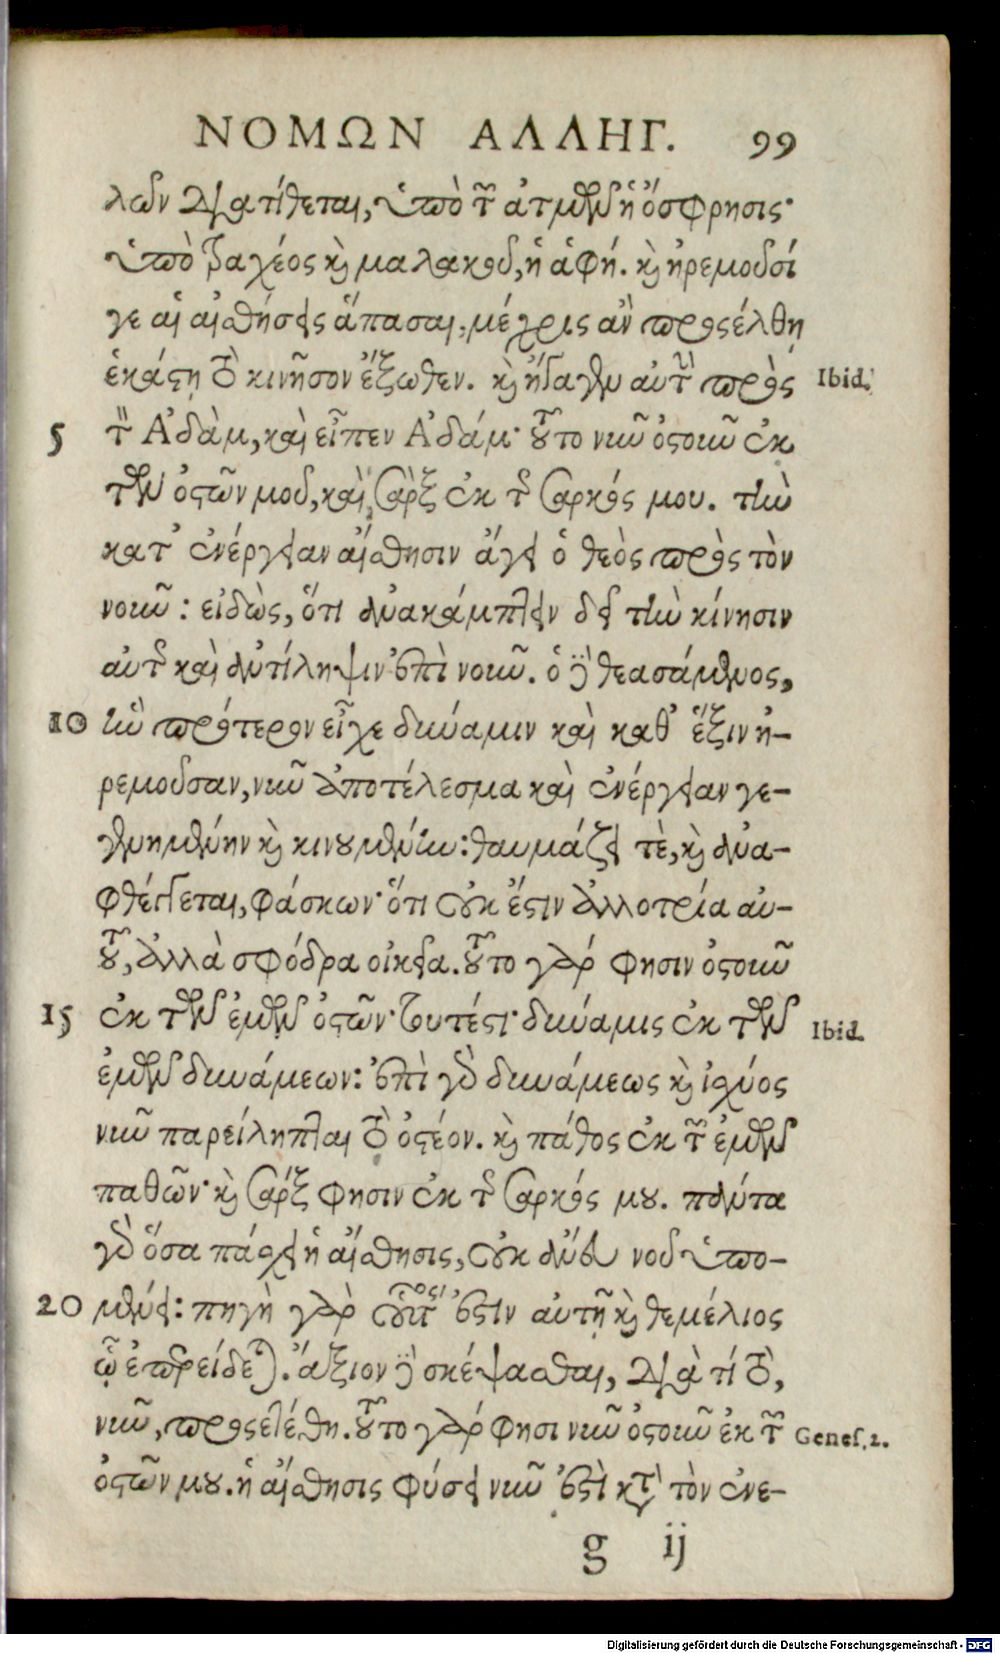 ΝΟΜΩΝ ΑΛΛΗΓ. 99
λῶν διατίθεται, ὑπὸ τ͂ ἀτμῶν ἡ ὄσφρησις·
ὑπὸ τραχέος κὶ μαλακοῦ, ἡ ἁφή. κὶ ἠρεμοῦσί
γε αἱ αἰσθήσεις ἅπασαι, μέχρις ἂν προςέλθῃ
ἑκάστῃ τὸ κινῆσον ἔξωθεν. κὶ ἤγαγεν αὐτὴν πρὸς
Ibid.
5 τὸν Ἀδὰμ, καὶ εἶπεν Ἀδάμ· τοῦτο νῦν ὀστοῦν ἐκ
τῶν ὀστῶν μοῦ, καὶ σὰρξ ἐκ τῆς σαρκός μου. τὴν
κατ᾽ ἐνέργειαν αἴσθησιν ἄγει ὁ θεὸς πρὸς τὸν
νοῦν: εἰδὼς, ὅτι ἀνακάμπτειν δεῖ τὴν κίνησιν
αὐτῆς καὶ ἀντίληψιν ἐπὶ νοῦν. ὁ δὲ θεασάμενος,
10 ἣν πρότερον εἶχε δύναμιν καὶ καθ᾽ ἕξιν ἠ-
ρεμοῦσαν, νῦν ἀποτέλεσμα καὶ ἐνέργειαν γε-
γενημένην κὶ κινουμένην: θαυμάζει τὲ, κὶ ἀνα-
φθέγγεται, φάσκων· ὅτι οὐκ ἔστιν ἀλλοτρία αὐ-
τοῦ, ἀλλὰ σφόδρα οἰκεία. τοῦτο γάρ φησιν ὀστοῦν
15 ἐκ τῶν ἐμῶν ὀστῶν· τουτέστι· δύναμις ἐκ τῶν
Ibid.
ἐμῶν δυνάμεων: ἐπὶ γὸ δυνάμεως κὶ ἰσχύος
νῦν παρείληπται τὸ ὀστέον. κὶ πάθος ἐκ τῶν ἐμῶν
παθῶν· κὶ σάρξ φησιν ἐκ τῆς σαρκός μου. πάντα
γὸ ὅσα πάσχει ἡ αἴσθησις, οὐκ ἄνευ νοῦ ὑπο-
20 μένει: πηγὴ γὰρ οὗτός ἐστιν αὐτῇ κὶ θεμέλιος
ᾧ ἐπερείδεται. ἄξιον δὲ σκέψασθαι, διὰ τί τὸ,
νῦν, προςετέθη. τοῦτο γάρ φησι νῦν ὀστοῦν ἐκ τῶν
Genes. 2.
ὀστῶν μου. ἡ αἴσθησις φύσει νῦν ἐστὶ κατὰ τὸν ἐνε-
g ij
Digitalisierung gefördert durch die Deutsche Forschungsgemeinschaft - DFG